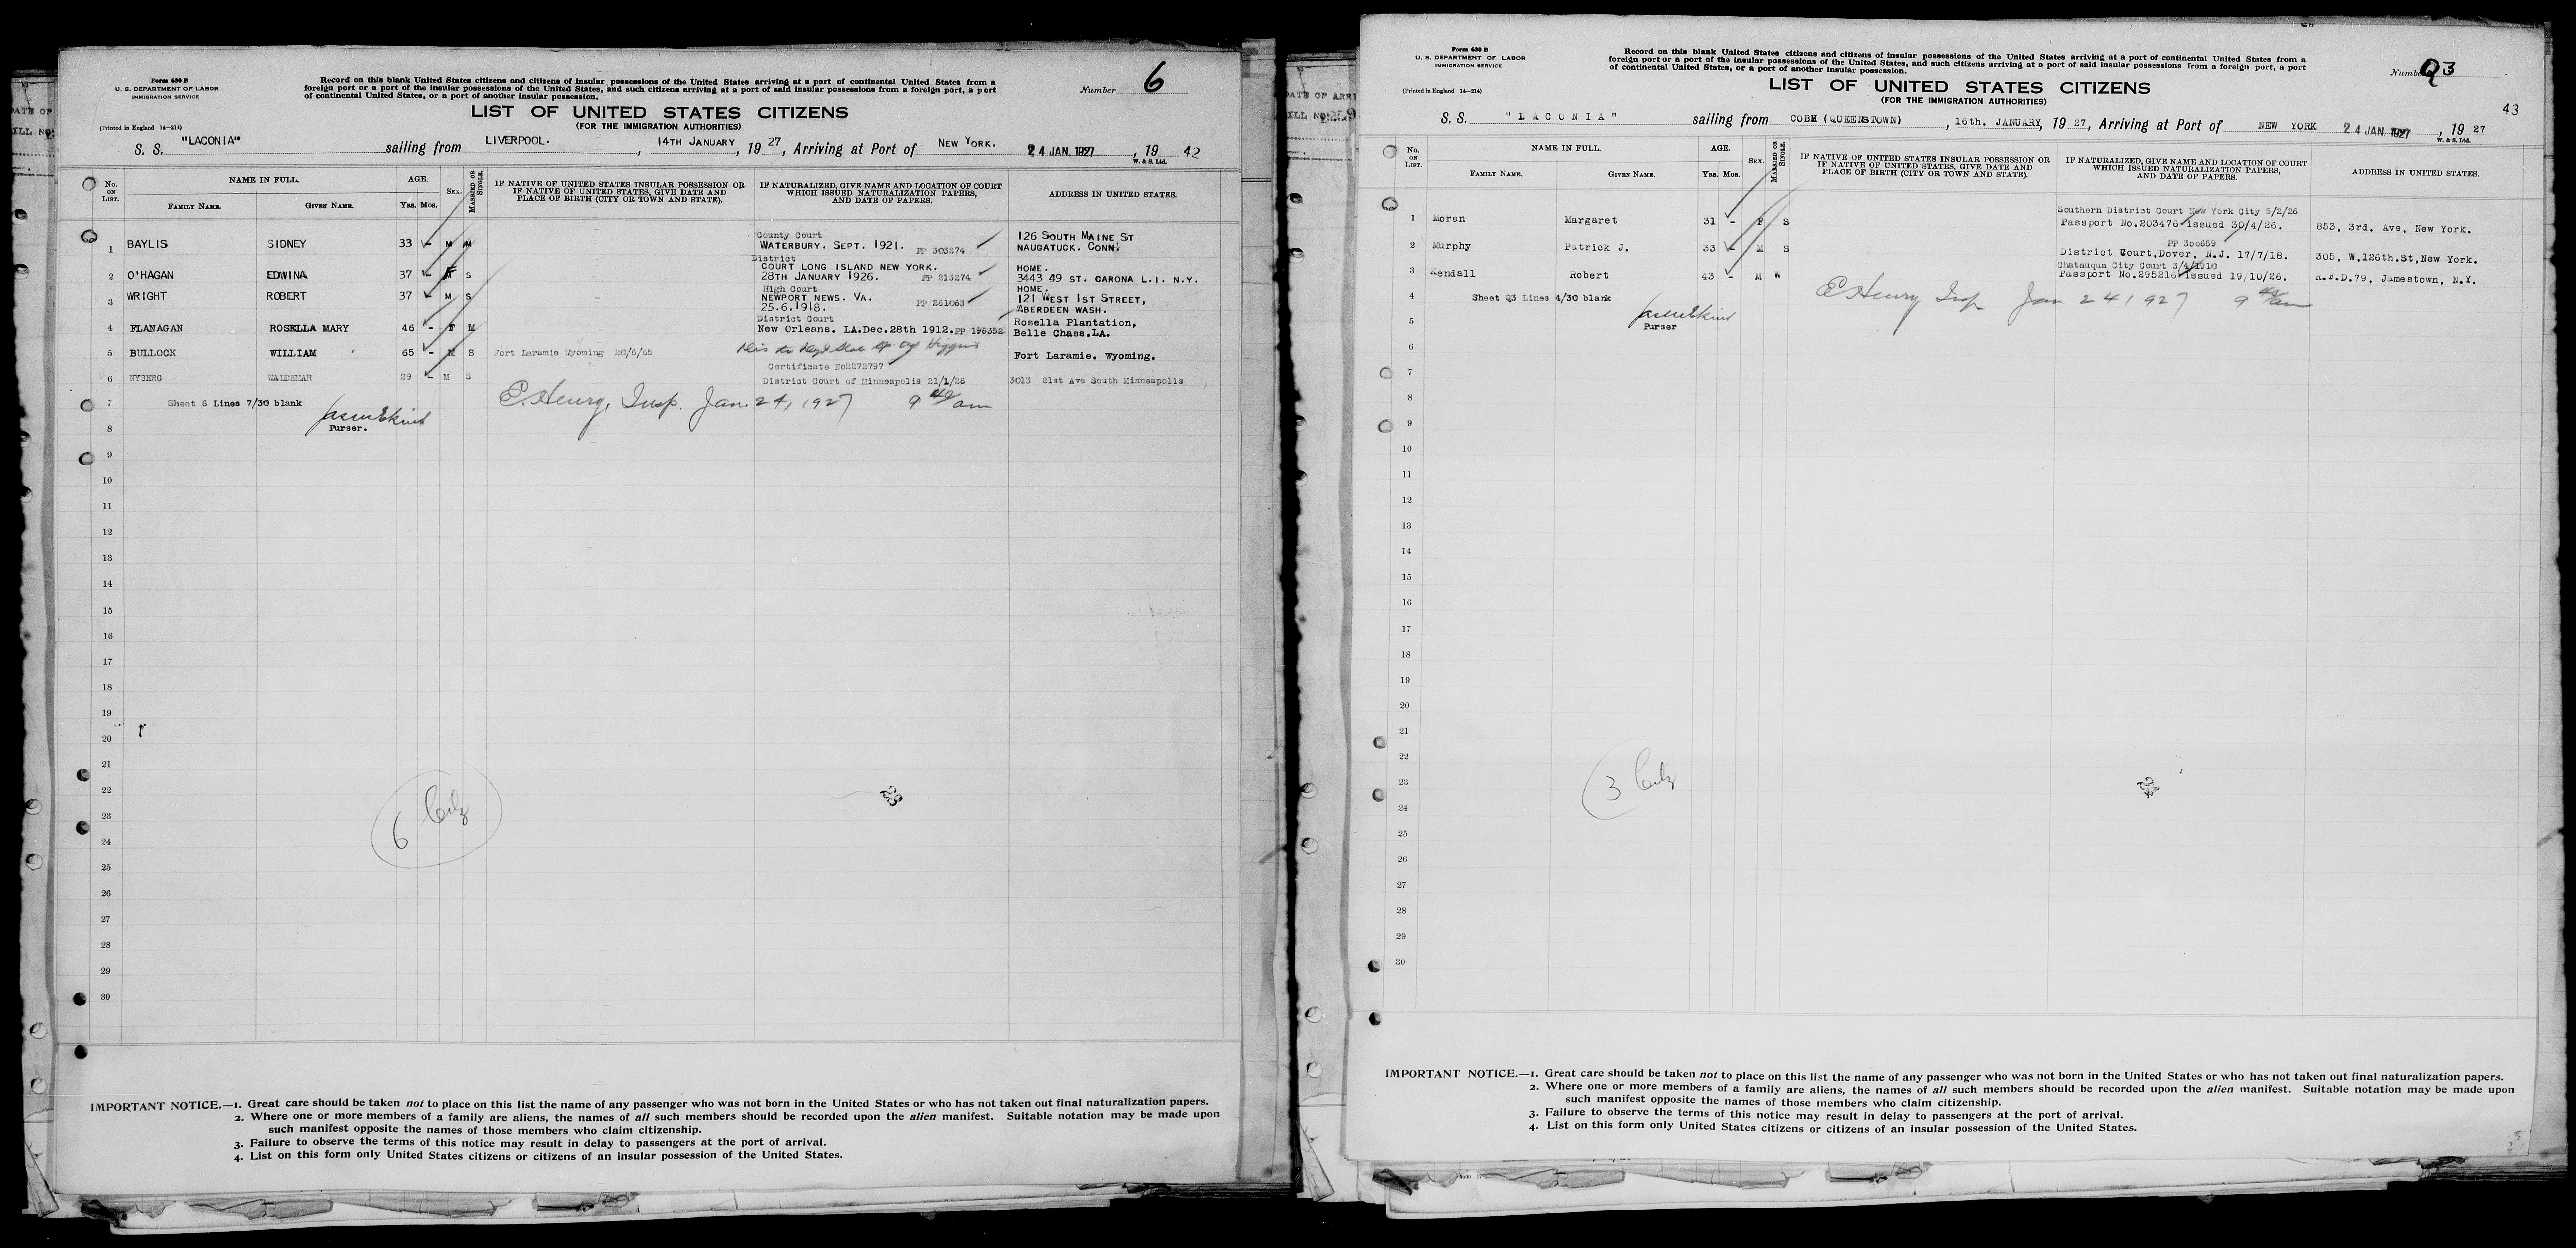 Form 630 B
U. S. DEPARTMENT OF LABOR
IMMIGRATION SERVICE
(Printed in England 14—214)
Record on this blank United States citizens and citizens of insular possessions of the United States arriving at a port of continental United States from a
foreign port or a port of the insular possessions of the United States, and such citizens arriving at a port of said insular possessions from a foreign port, a port
of continental United States, or a port of another insular possession.
Number 6
LIST OF UNITED STATES CITIZENS
(FOR THE IMMIGRATION AUTHORITIES)
S. S. "LACONIA" sailing from LIVERPOOL. , 14TH JANUARY , 19 27 , Arriving at Port of NEW YORK. 24 JAN. 1927 , 19 42
W. & S. Ltd.
No. ON LIST.
NAME IN FULL.
FAMILY NAME. GIVEN NAME.
AGE.
Yrs. Mos.
SEX.
MARRIED OR SINGLE.
IF NATIVE OF UNITED STATES INSULAR POSSESSION OR
IF NATIVE OF UNITED STATES, GIVE DATE AND
PLACE OF BIRTH (CITY OR TOWN AND STATE).
IF NATURALIZED, GIVE NAME AND LOCATION OF COURT
WHICH ISSUED NATURALIZATION PAPERS,
AND DATE OF PAPERS.
ADDRESS IN UNITED STATES.
County Court 126 SOUTH MAINE ST
1 BAYLIS SIDNEY 33 - M M WATERBURY. SEPT. 1921. PP 303274 NAUGATUCK. CONN.
District
COURT LONG ISLAND NEW YORK. HOME.
2 O'HAGAN EDWINA 37 - F S 28TH JANUARY 1926. PP 213274 3443 49 ST. CARONA L.I. N.Y.
High Court HOME.
3 WRIGHT ROBERT 37 - M S NEWPORT NEWS. VA. PP 261063 121 WEST 1ST STREET,
25.6.1918. ABERDEEN WASH.
District Court Rosella Plantation,
4 FLANAGAN ROSELLA MARY 46 - F M New Orleans. LA. Dec. 28th 1912. PP 196352 Belle Chass. LA.
5 BULLOCK WILLIAM 65 - M S Fort Laramie Wyoming 20/6/65 Fort Laramie. Wyoming.
Certificate No2272797
6 NYBERG WALDEMAR 29 - M S District Court of Minneapolis 21/1/26 3013 21st Ave South Minneapolis
7 Sheet 6 Lines 7/30 blank E. Henry, Insp. Jan. 24, 1927 9 40 am
8 Purser.
9
10
11
12
13
14
15
16
17
18
19
20
21
22
23
24
25
26
27
28
29
30
6
23
IMPORTANT NOTICE.—1. Great care should be taken not to place on this list the name of any passenger who was not born in the United States or who has not taken out final naturalization papers.
2. Where one or more members of a family are aliens, the names of all such members should be recorded upon the alien manifest. Suitable notation may be made upon
such manifest opposite the names of those members who claim citizenship.
3. Failure to observe the terms of this notice may result in delay to passengers at the port of arrival.
4. List on this form only United States citizens or citizens of an insular possession of the United States.
Form 630 B
U. S. DEPARTMENT OF LABOR
IMMIGRATION SERVICE
(Printed in England 14—214)
Record on this blank United States citizens and citizens of insular possessions of the United States arriving at a port of continental United States from a
foreign port or a port of the insular possessions of the United States, and such citizens arriving at a port of said insular possessions from a foreign port, a port
of continental United States, or a port of another insular possession.
Number Q3
43
LIST OF UNITED STATES CITIZENS
(FOR THE IMMIGRATION AUTHORITIES)
S. S. "LACONIA" sailing from COBH (QUEENSTOWN) , 16th. JANUARY, 19 27, Arriving at Port of NEW YORK 24 JAN 1927 , 19 27
W. & S. Ltd.
No. ON LIST.
NAME IN FULL.
FAMILY NAME. GIVEN NAME.
AGE.
Yrs. Mos.
SEX.
MARRIED OR SINGLE.
IF NATIVE OF UNITED STATES INSULAR POSSESSION OR
IF NATIVE OF UNITED STATES, GIVE DATE AND
PLACE OF BIRTH (CITY OR TOWN AND STATE).
IF NATURALIZED, GIVE NAME AND LOCATION OF COURT
WHICH ISSUED NATURALIZATION PAPERS,
AND DATE OF PAPERS.
ADDRESS IN UNITED STATES.
Southern District Court New York City 5/2/26
1 Moran Margaret 31 - F S Passport No.203476 issued 30/4/26. 853, 3rd. Ave, New York.
PP 300659
2 Murphy Patrick J. 33 - M S District Court, Dover, N.J. 17/7/18. 305, W,126th.St, New York.
Chatauqua City Court 3/4/1910
3 Kendall Robert 43 - M W Passport No.295216 issued 19/10/26. R.F.D.79, Jamestown, N.Y.
4 Sheet Q3 Lines 4/30 blank E. Henry Insp Jan 24 1927 9 40 am
5 Purser
6
7
8
9
10
11
12
13
14
15
16
17
18
19
20
21
22
23
24
25
26
27
28
29
30
3
24
IMPORTANT NOTICE.—1. Great care should be taken not to place on this list the name of any passenger who was not born in the United States or who has not taken out final naturalization papers.
2. Where one or more members of a family are aliens, the names of all such members should be recorded upon the alien manifest. Suitable notation may be made upon
such manifest opposite the names of those members who claim citizenship.
3. Failure to observe the terms of this notice may result in delay to passengers at the port of arrival.
4. List on this form only United States citizens or citizens of an insular possession of the United States.